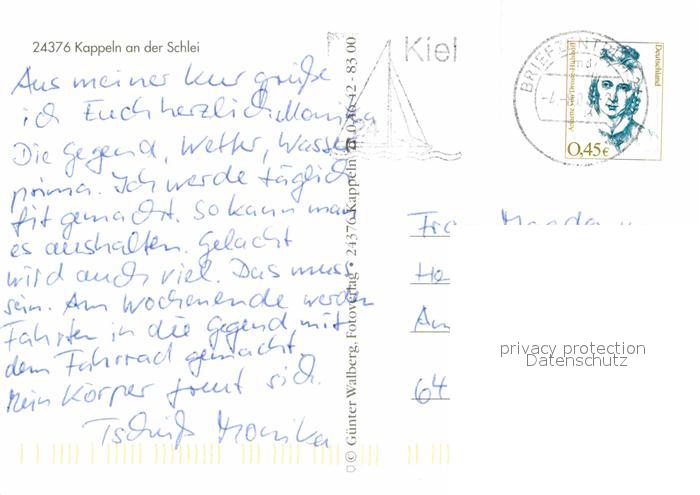 24376 Kappeln an der Schlei
Aus meiner Kur grüße
ich Euch herzlich Monika
Die Gegend, Wetter, Wasser
prima. Ich werde täglich
fit gemacht. So kann man
es aushalten. Gelacht
wird auch viel. Das muss
sein. Am Wochenende werden
Fahrten in die Gegend mit
dem Fahrrad gemacht.
Mein Körper freut sich.
Tschüß Monika
© Günter Walberg, Fotoverlag • 24376 Kappeln ☎ 0 46 42 - 83 00
Kiel
BRIEFZENTRUM
Deutschland
Annette von Droste-Hülshoff
0,45€
Ho
Am
64
privacy protection
Datenschutz